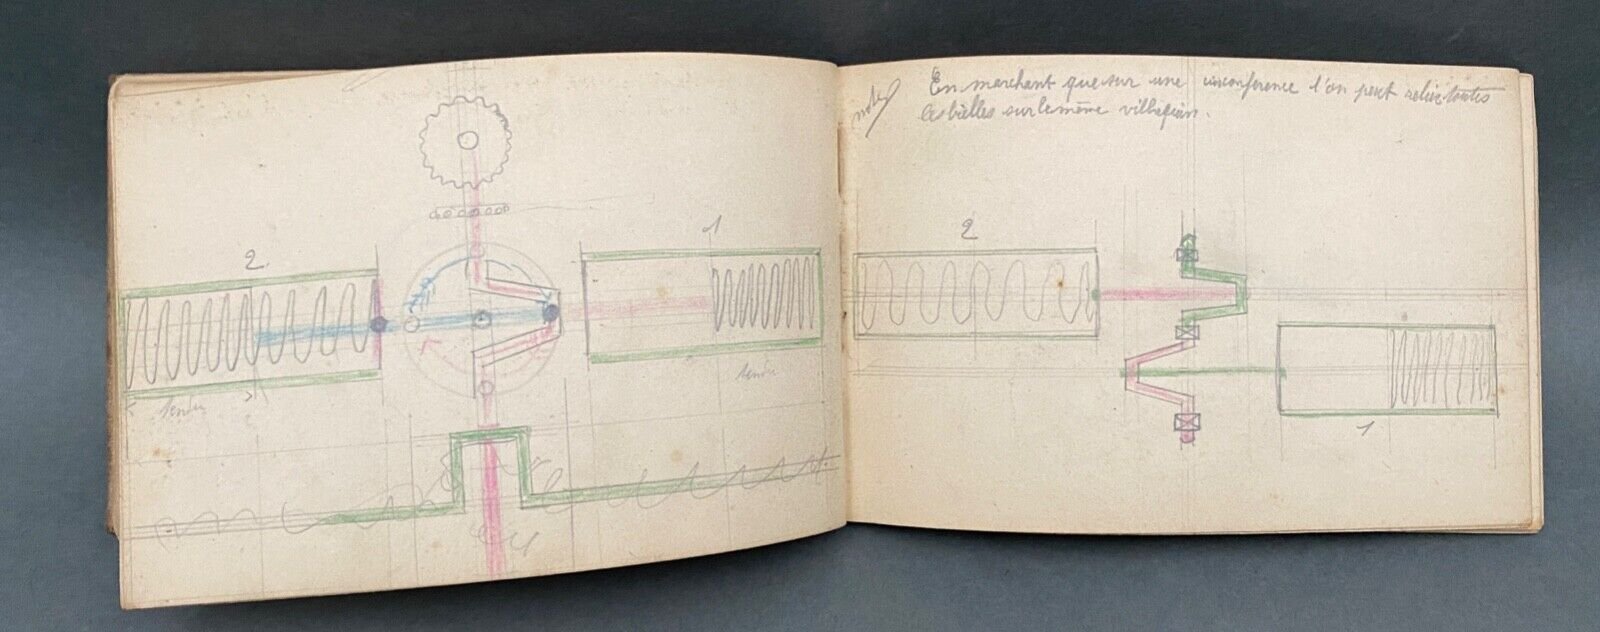 2
1
tendu
tendu
note
En marchant que sur une circonférence l'on peut relier toutes
les bielles sur le même vilbrequin.
2
1